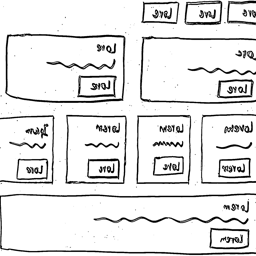 Love Love Love
Lore Lore
Love Lore
Lorem Lorem
Lorem Love Lore Lore
Lorem
Lorem